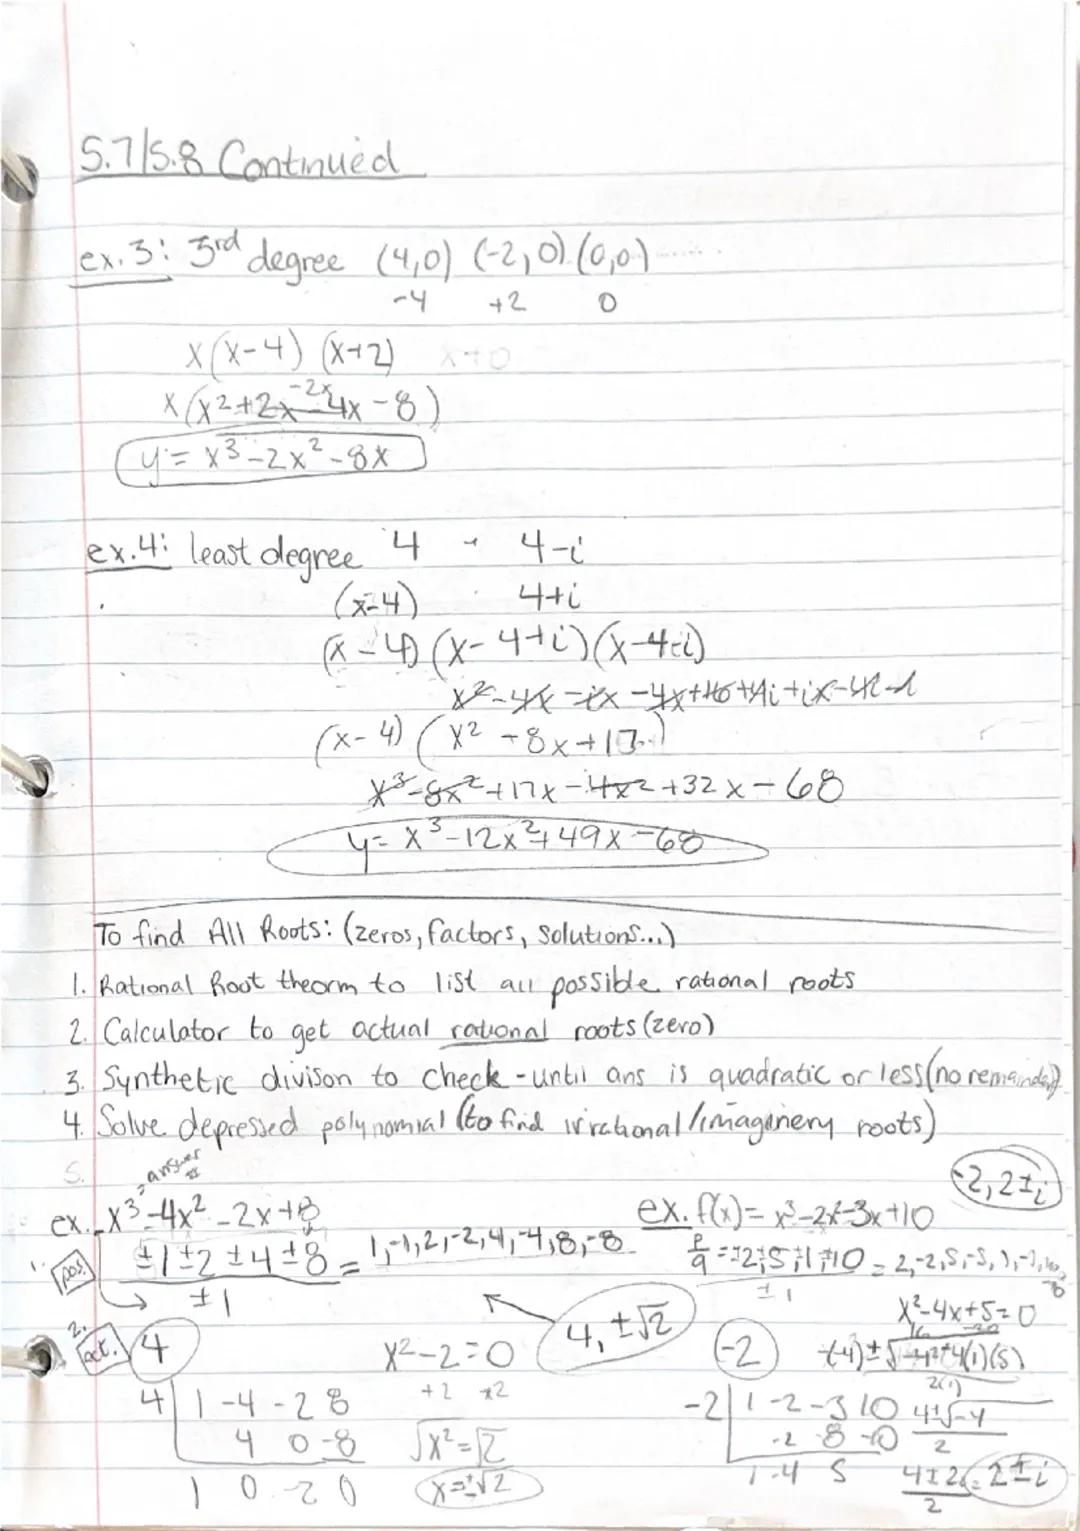 5.7/5.8 Continued
ex. 3: 3rd degree (4,0) (-2,0) (0,0)
-4 +2 0
x(x-4) (x+2) x+0
-2x
x(x²+2x-4x-8)
y = x³-2x²-8x
ex. 4: least degree 4 4-i
(x-4) 4+i
(x-4)(x-4+i)(x-4-i)
(x-4)(x²-8x+17)
x³-8x²+17x-4x²+32x-68
y= x³-12x²+49x-68
To find All Roots: (zeros, factors, solutions...)
1. Rational Root theorm to list all possible rational roots
2. Calculator to get actual rational roots (zero)
3. Synthetic divison to check - until ans is quadratic or less (no remainder)
4. Solve depressed polynomial (to find irrational/imaginery roots)
5.
answer
-2, 2±i
ex. x³-4x²-2x+8
ex. f(x)= x³-2x²-3x+10
1. pos. ±1 ±2 ±4 ±8 = 1,-1,2,-2,4,-4,8,-8
±1
p/q = ±2,±5,±1,±10 = 2,-2,5,-5,1,-1,10,
±1
4, ±√2
x²-4x+5=0
16 -20
2. act. 4
x²-2=0
+2 +2
-2
2(1)
4| 1 -4 -2 8
4 0 -8
1 0 -2 0
√x²=√2
x=±√2
-2| 1 -2 -3 10
-2 8 -10
1 -4 5
4±√-4
2
4±2i = 2±i
2